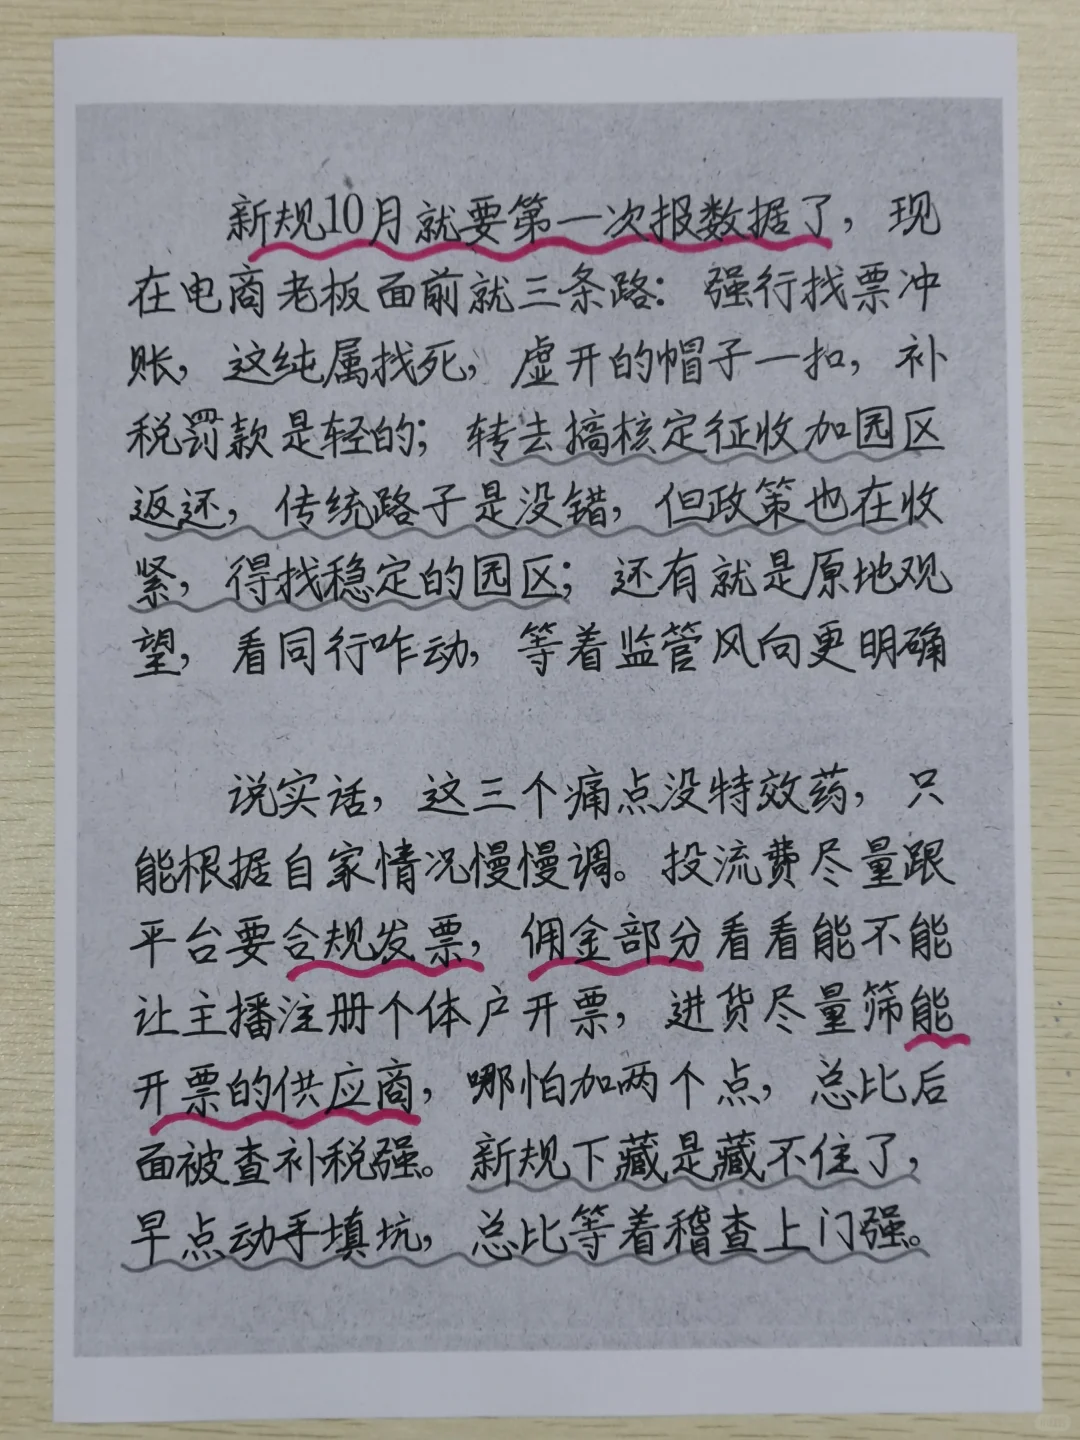 新规10月就要第一次报数据了，现
在电商老板面前就三条路：强行找票冲
账，这纯属找死，虚开的帽子一扣，补
税罚款是轻的；转去搞核定征收加园区
返还，传统路子是没错，但政策也在收
紧，得找稳定的园区；还有就是原地观
望，看同行咋动，等着监管风向更明确
说实话，这三个痛点没特效药，只
能根据自家情况慢慢调。投流费尽量跟
平台要合规发票，佣金部分看看能不能
让主播注册个体户开票，进货尽量筛能
开票的供应商，哪怕加两个点，总比后
面被查补税强。新规下藏是藏不住了，
早点动手填坑，总比等着稽查上门强。